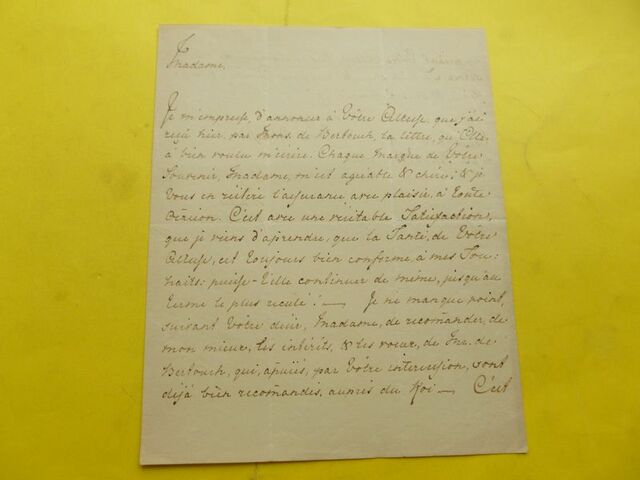 Madame,
Je m'empresse, d'annoncer à Vôtre Altesse, que j'ai
reçû hier, par Mons. de Bertouch, la lettre, qu'Elle
à bien voulu m'écrire. Chaque marque de Vôtre
Souvenir, Madame, m'est agréable & chère; & je
Vous en réitère l'assurance, avec plaisir, à toute
Occasion. C'est avec une véritable Satisfaction,
que je viens d'aprendre, que la Santé, de Vôtre
Altesse, est toujours bien conforme, à mes Sou-
haits: puisse-t'elle continuer de même, jusqu'au
terme le plus reculé! — Je ne manque point,
suivant Vôtre désir, Madame, de recomander, de
mon mieux, les intérêts, & les voeux, de Mr. de
Bertouch, qui, apuiés, par Vôtre intercession, sont
déjà bien recomandés, auprès du Roi — C'est